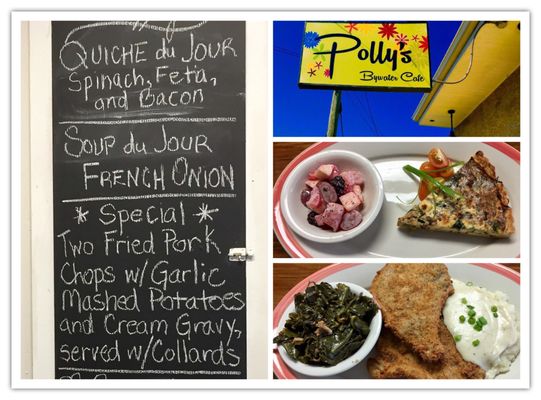 QUICHE du JOUR
Spinach, Feta,
and Bacon
SOUP du JOUR
FRENCH ONION
* Special *
Two Fried Pork
Chops w/ Garlic
Mashed Potatoes
and Cream Gravy,
served w/Collards
Polly's
Bywater Cafe